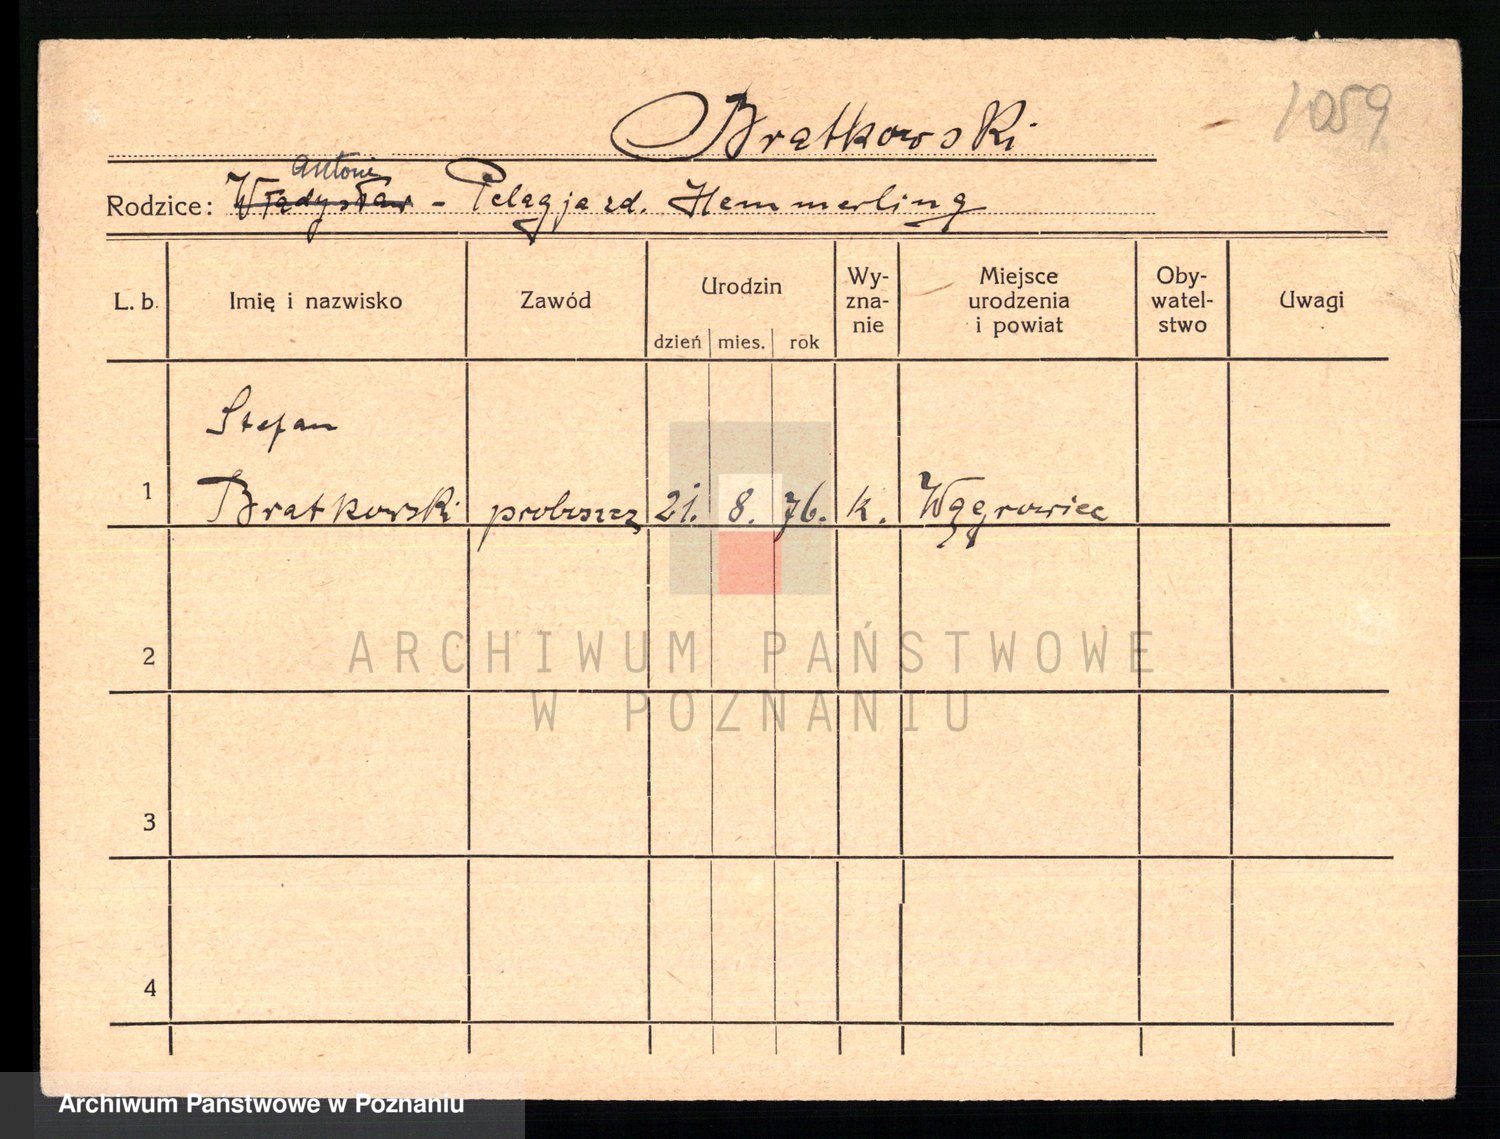 1059
Bratkowski
Antoni
Rodzice: Władysław - Pelagja zd. Hemmerling
L. b. Imię i nazwisko Zawód Urodzin dzień mies. rok Wy-zna-nie Miejsce urodzenia i powiat Oby-watel-stwo Uwagi
Stefan
1 Bratkowski proboszcz 21. 8. 76. k. Wągrowiec
2
ARCHIWUM PAŃSTWOWE
W POZNANIU
3
4
Archiwum Państwowe w Poznaniu